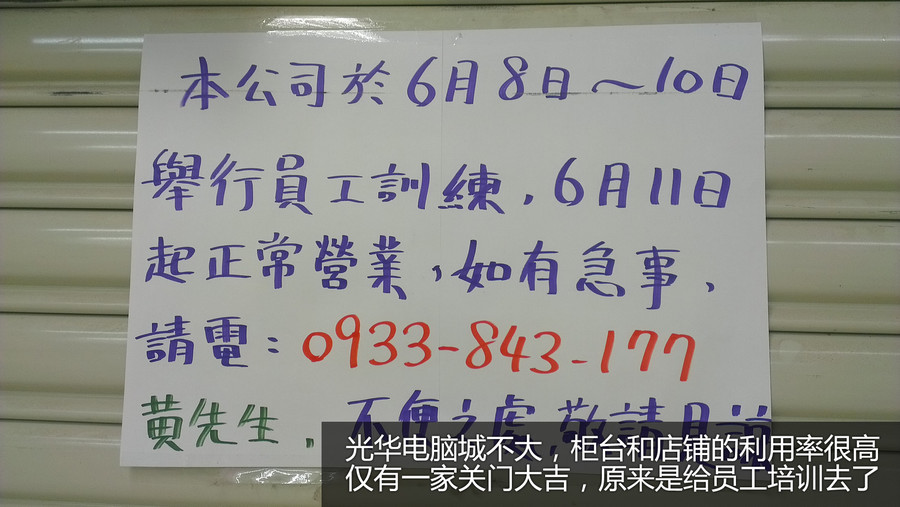 本公司於6月8日～10日
舉行員工訓練，6月11日
起正常營業，如有急事，
請電：0933-843-177
黃先生，不便之處，敬請見諒
光华电脑城不大，柜台和店铺的利用率很高
仅有一家关门大吉，原来是给员工培训去了